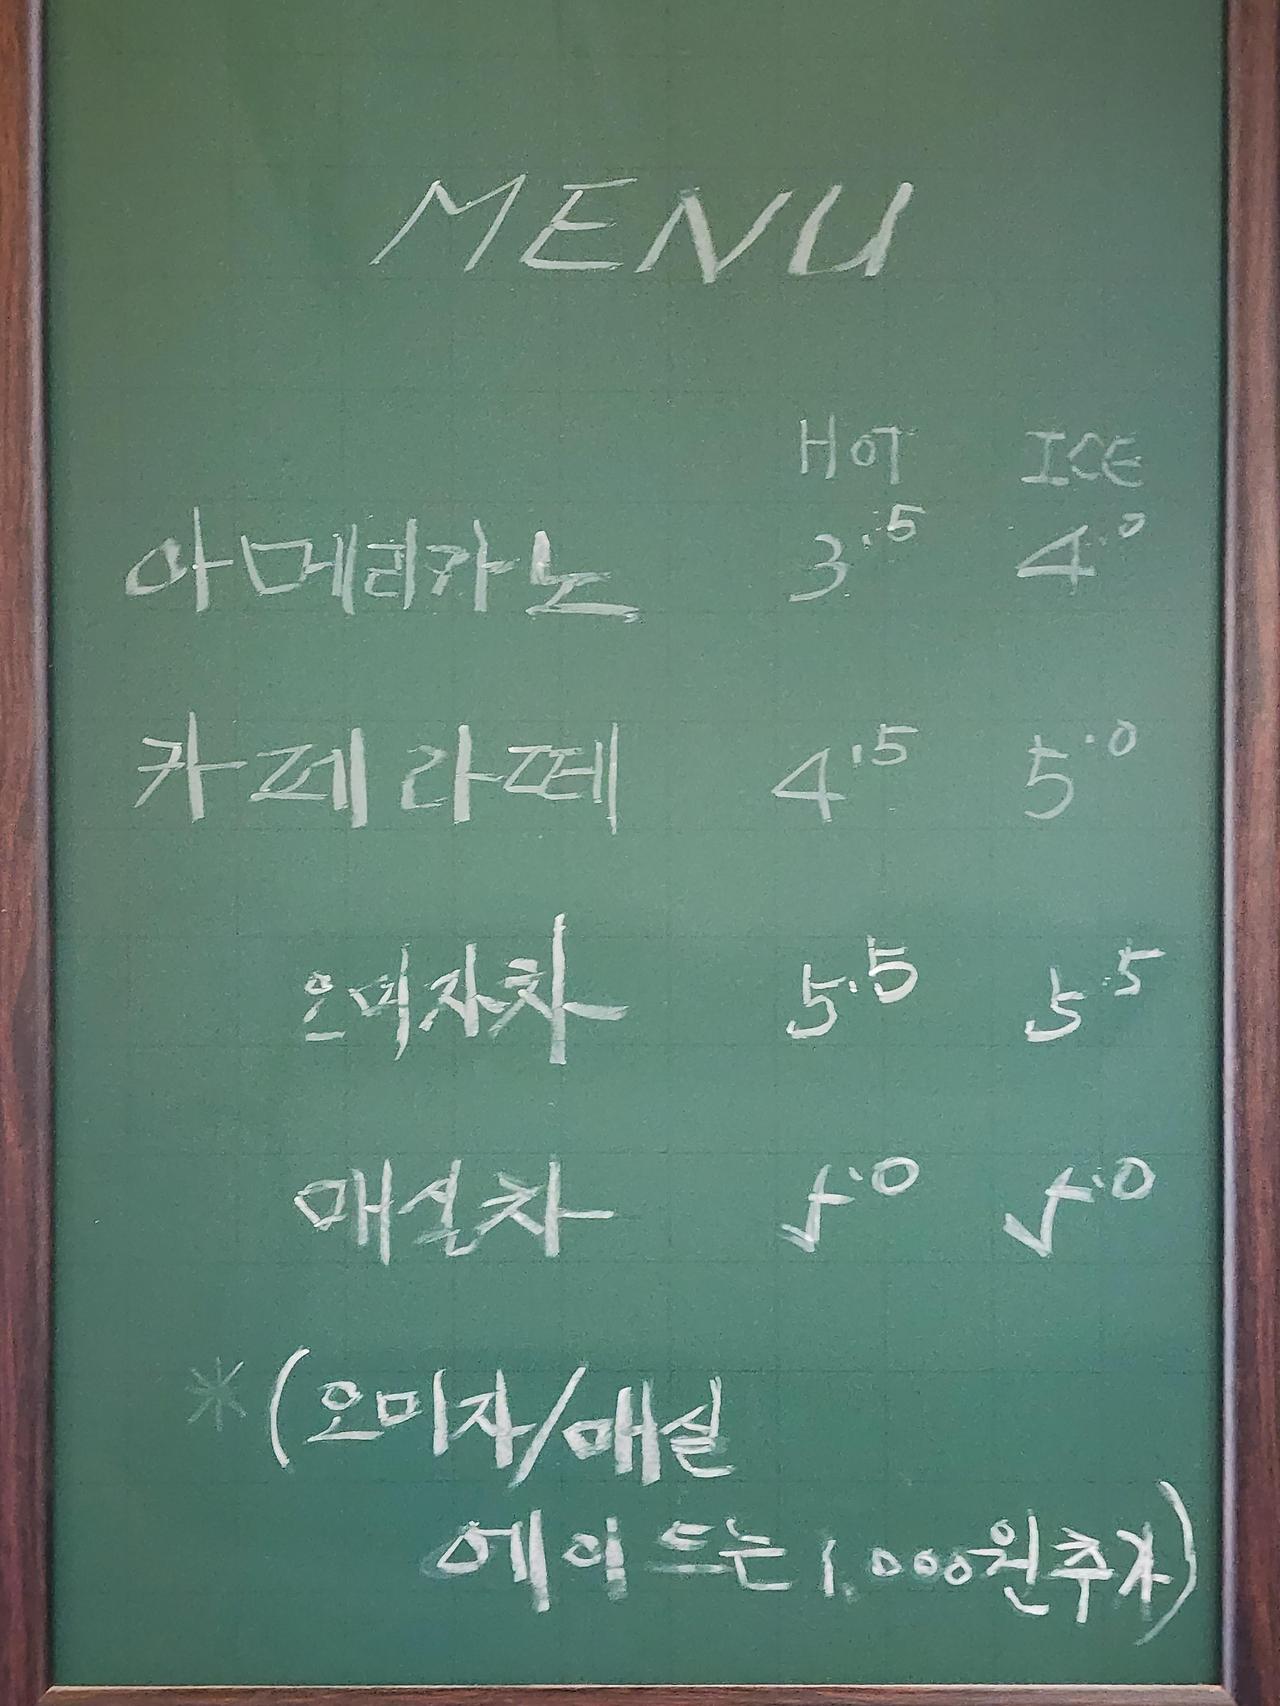 MENU
HOT ICE
아메리카노 3.5 4.0
카페라떼 4.5 5.0
오미자차 5.5 5.5
매실차 5.0 5.0
* (오미자/매실
에이드는 1,000원추가)